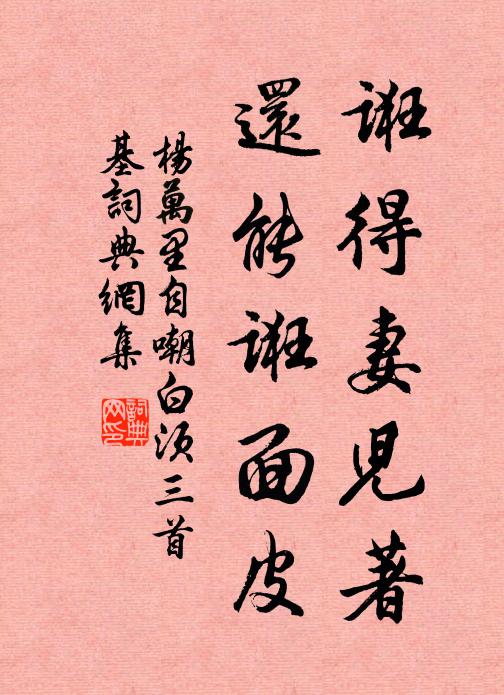 誑得妻兒著
還能誑面皮
楊萬里自嘲白須三首
基詞典網集
詞典网印